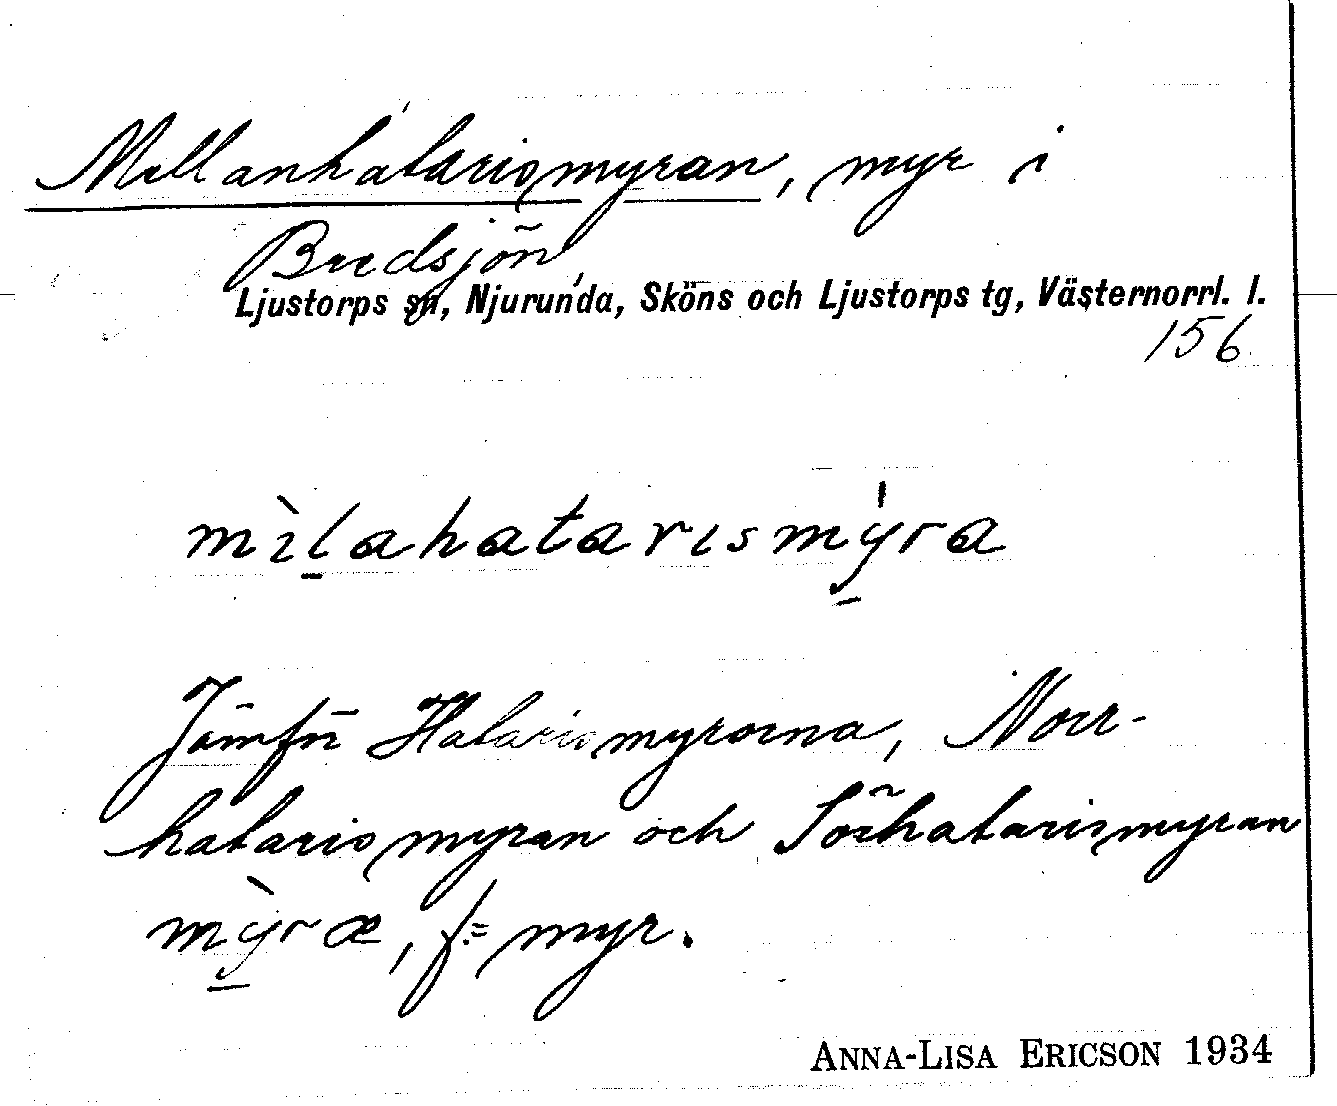 Mellanhatarismyran, myr i
Bredsjön,
Ljustorps sn, Njurunda, Sköns och Ljustorps tg, Västernorrl. l.
156
mìlahatarismýra
Jämför Hatarismyrorna, Norr-
hatarismyran och Sörhatarismyran
mỳræ, f. = myr.
ANNA-LISA ERICSON 1934